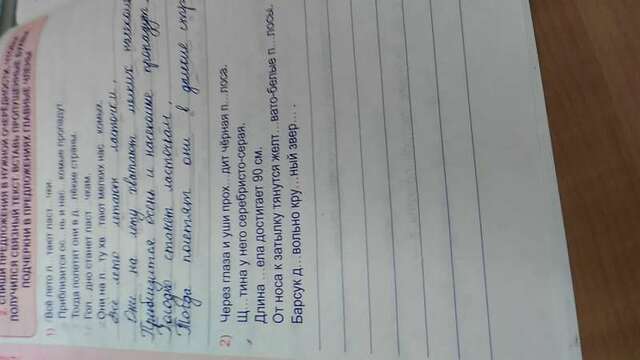 СПИШИ ПРЕДЛОЖЕНИЯ В НУЖНОЙ ОЧЕРЕДНОСТИ, ЧТОБЫ
ПОЛУЧИЛСЯ СВЯЗНЫЙ ТЕКСТ. ВСТАВЬ ПРОПУЩЕННЫЕ БУКВЫ.
ПОДЧЕРКНИ В ПРЕДЛОЖЕНИЯХ ГЛАВНЫЕ ЧЛЕНЫ
1) Всё лето л тают ласт чки.
Приблизится ос нь и нас комые пропадут.
Тогда полетят они в д лёкие страны.
Гол дно станет ласт чкам.
Они на л ту хв тают мелких нас комых.
Всё лето летают ласточки.
Они на лету хватают мелких насеком
Приблизится осень и насекомые пропадут.
Голодно станет ласточкам.
Тогда полетят они в далёкие стра
2) Через глаза и уши прох...дит чёрная п...лоса.
Щ...тина у него серебристо-серая.
Длина ...ела достигает 90 см.
От носа к затылку тянутся желт...вато-белые п...лосы.
Барсук д...вольно кру...ный звер... .